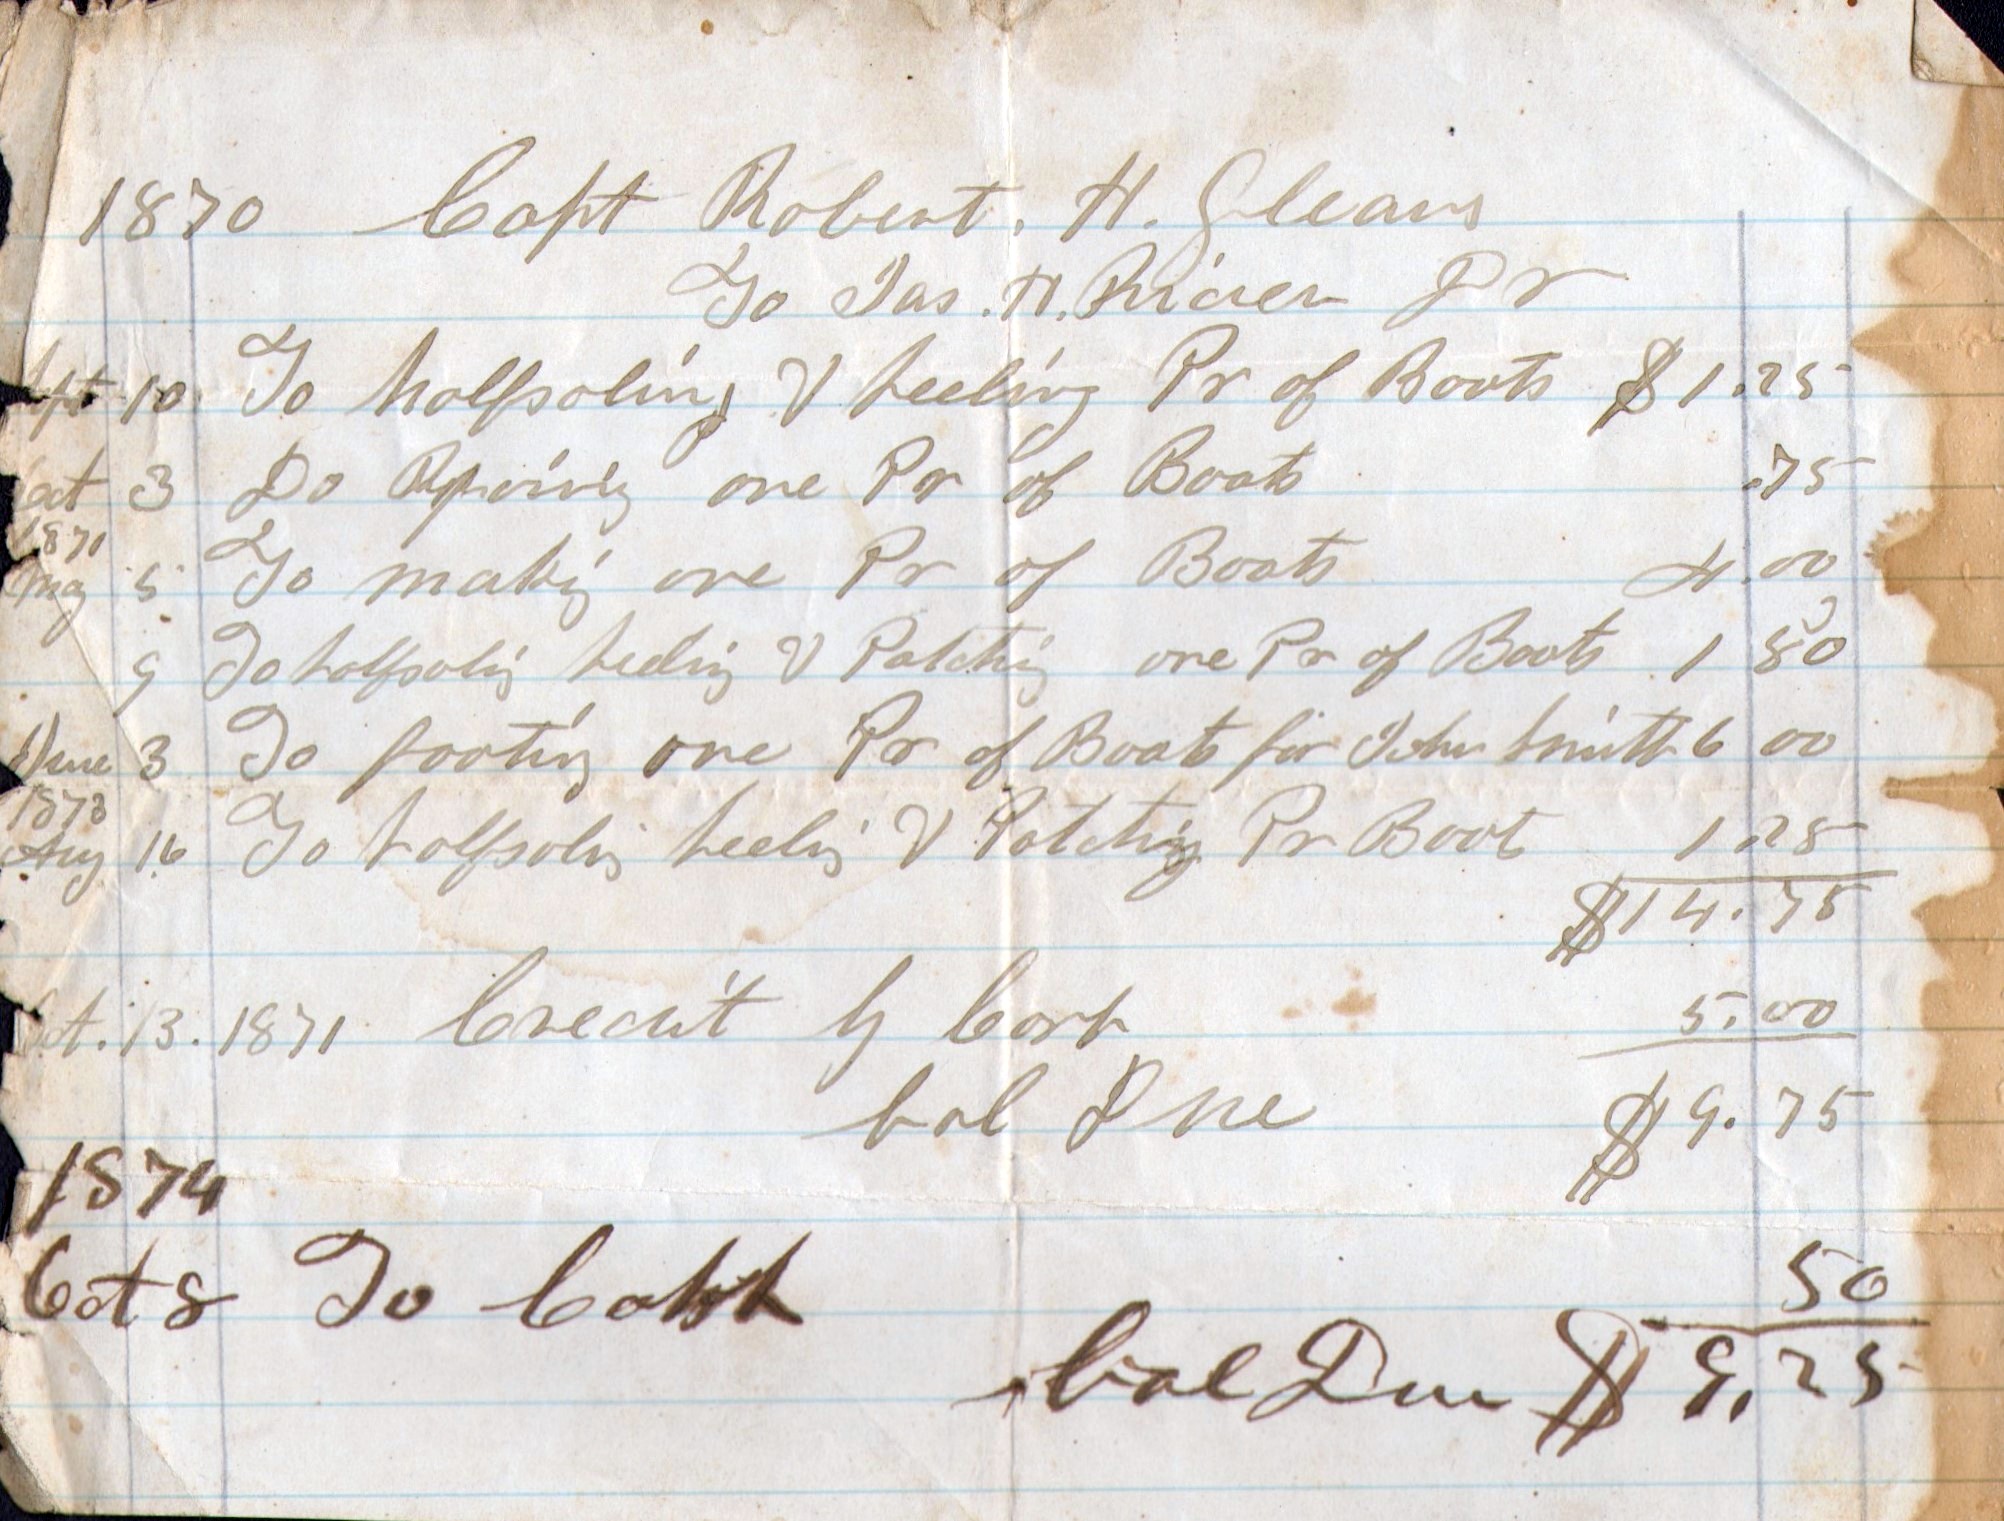 1870 Capt Robert. H. Gleavs
To Jas. H. Rider Dr
Sept 10 To halfsoling & heeling Pr of Boots $1.25
Oct 3 Do Repairing one Pr of Boots .75
1871
May 5 To making one Pr of Boots 4.00
9 To halfsolig heelig & Patchig one Pr of Boots 1 50
June 3 To footing one Pr of Boots for John Smith 6 00
1873
Aug 16 To halfsolig heelig & Patchig Pr Boot 1.25
$14.75
Oct. 13. 1871 Credit by Corn 5.00
bal Due $9.75
1874
Oct 8 To Cash 50
bal Due $9.25